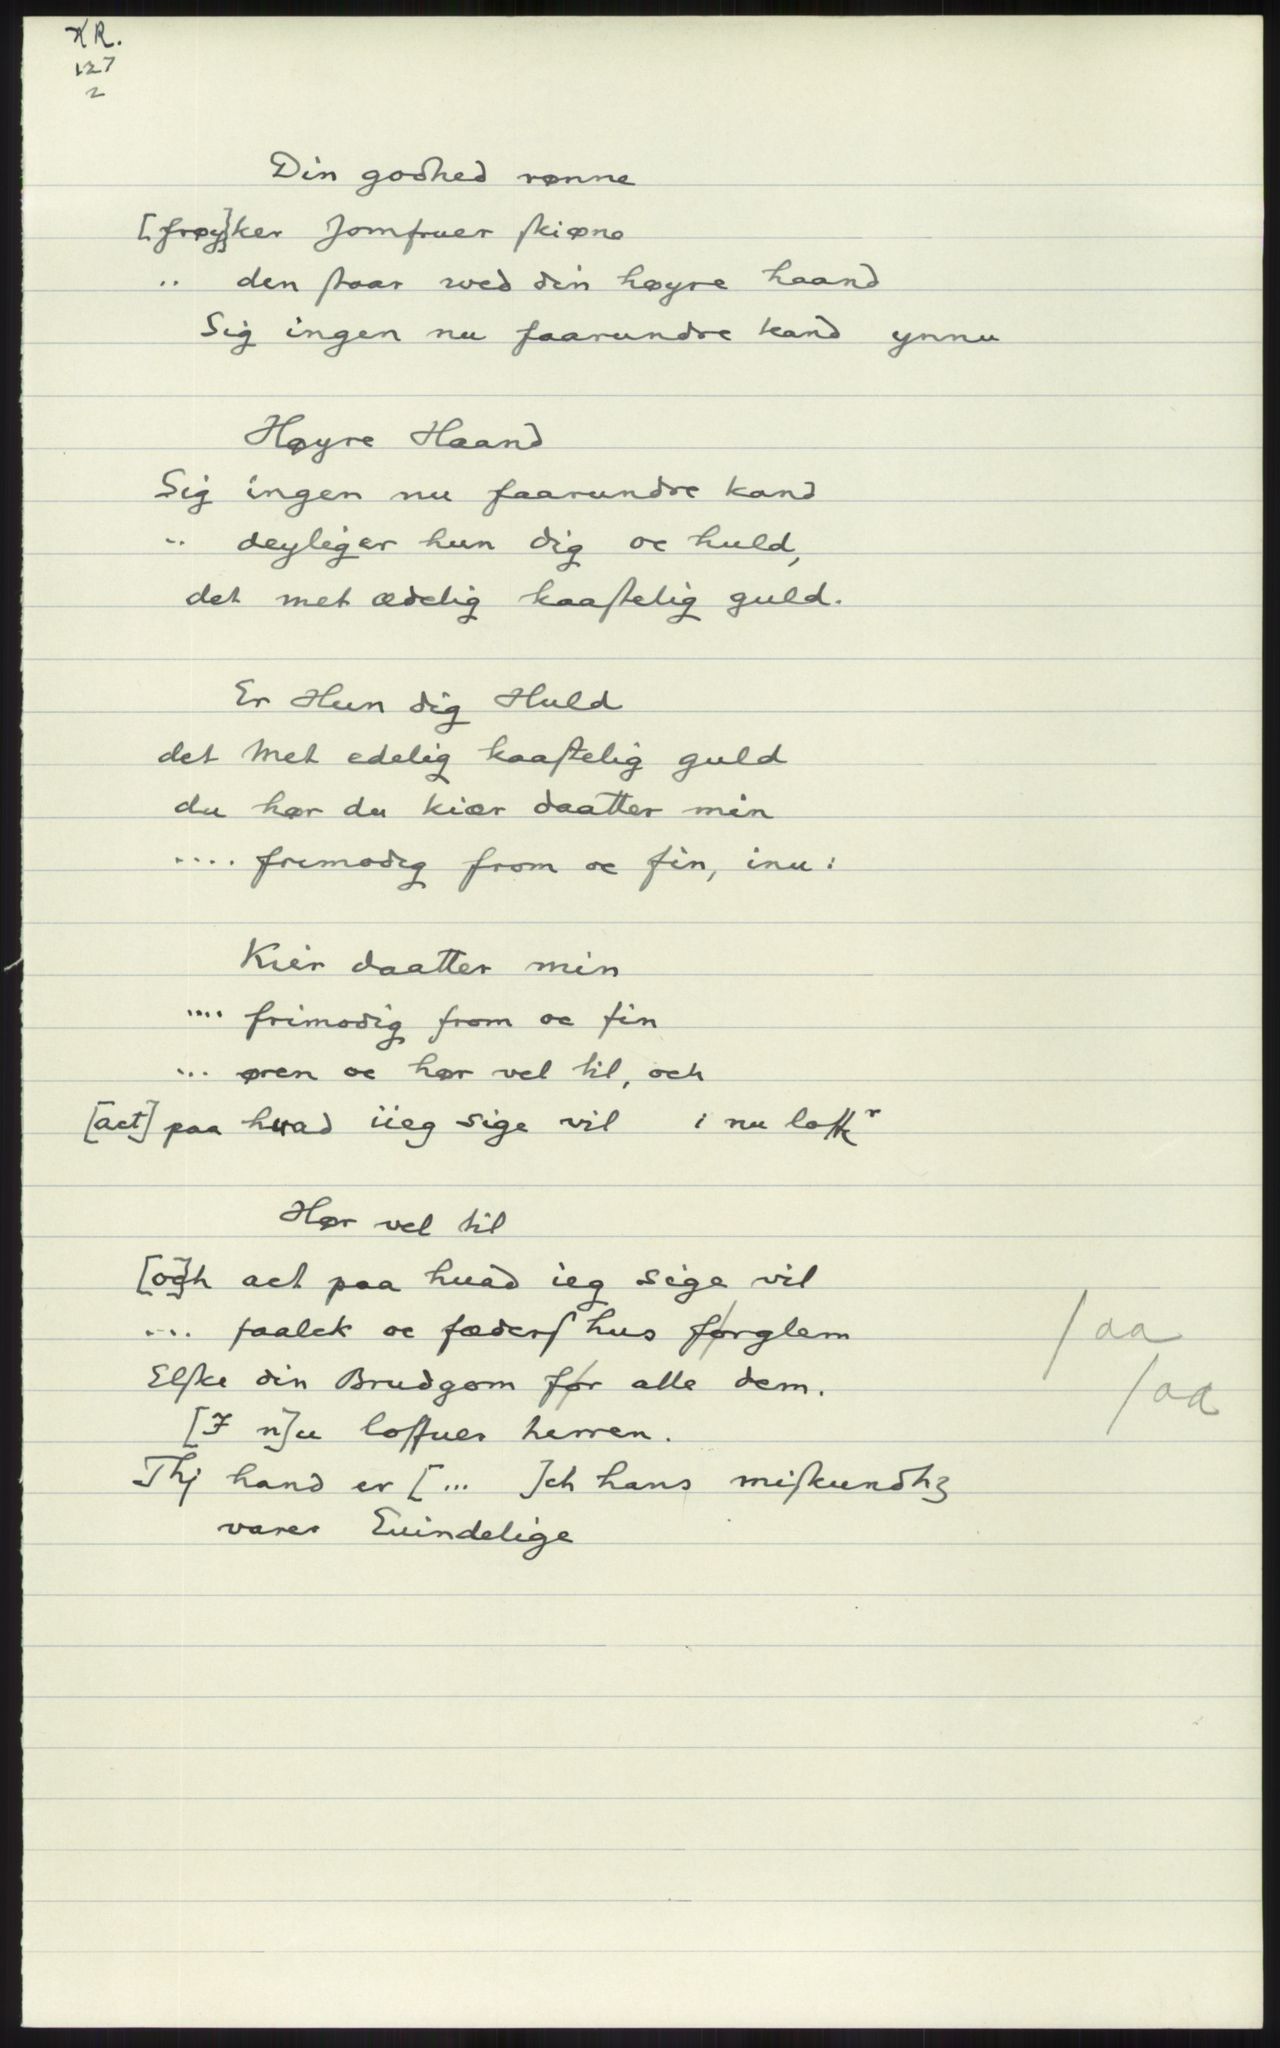 KR.
127
2
Din godhed rønne
[frøy]ker Jomfruer ſkiøne
.. den ſtaar wed din høyre haand
Sig ingen nu faarundre kand ynnu
Høyre Haand
Sig ingen nu faarundre kand
.. deyliger hun dig oc huld,
det met ædelig kaaſtelig guld.
Er Hun dig Huld
det Met edelig kaaſtelig guld
du hør du kiær daatter min
.... frimodig from oc fin, inu:
Kiér daatter min
.... frimodig from oc fin
... øren oc hør vel til, och
[act] paa huad iieg sige vil i nu
Hør vel til
[oc]h act paa huad ieg sige vil
... faalck oc fæderſ hus førglem /aa
Elſke din Brudgom før alle dem. /aa
[I n]u loffuer herren.
Thj hand er [... ]ch hans miſkundhʒ
varer Euindelige